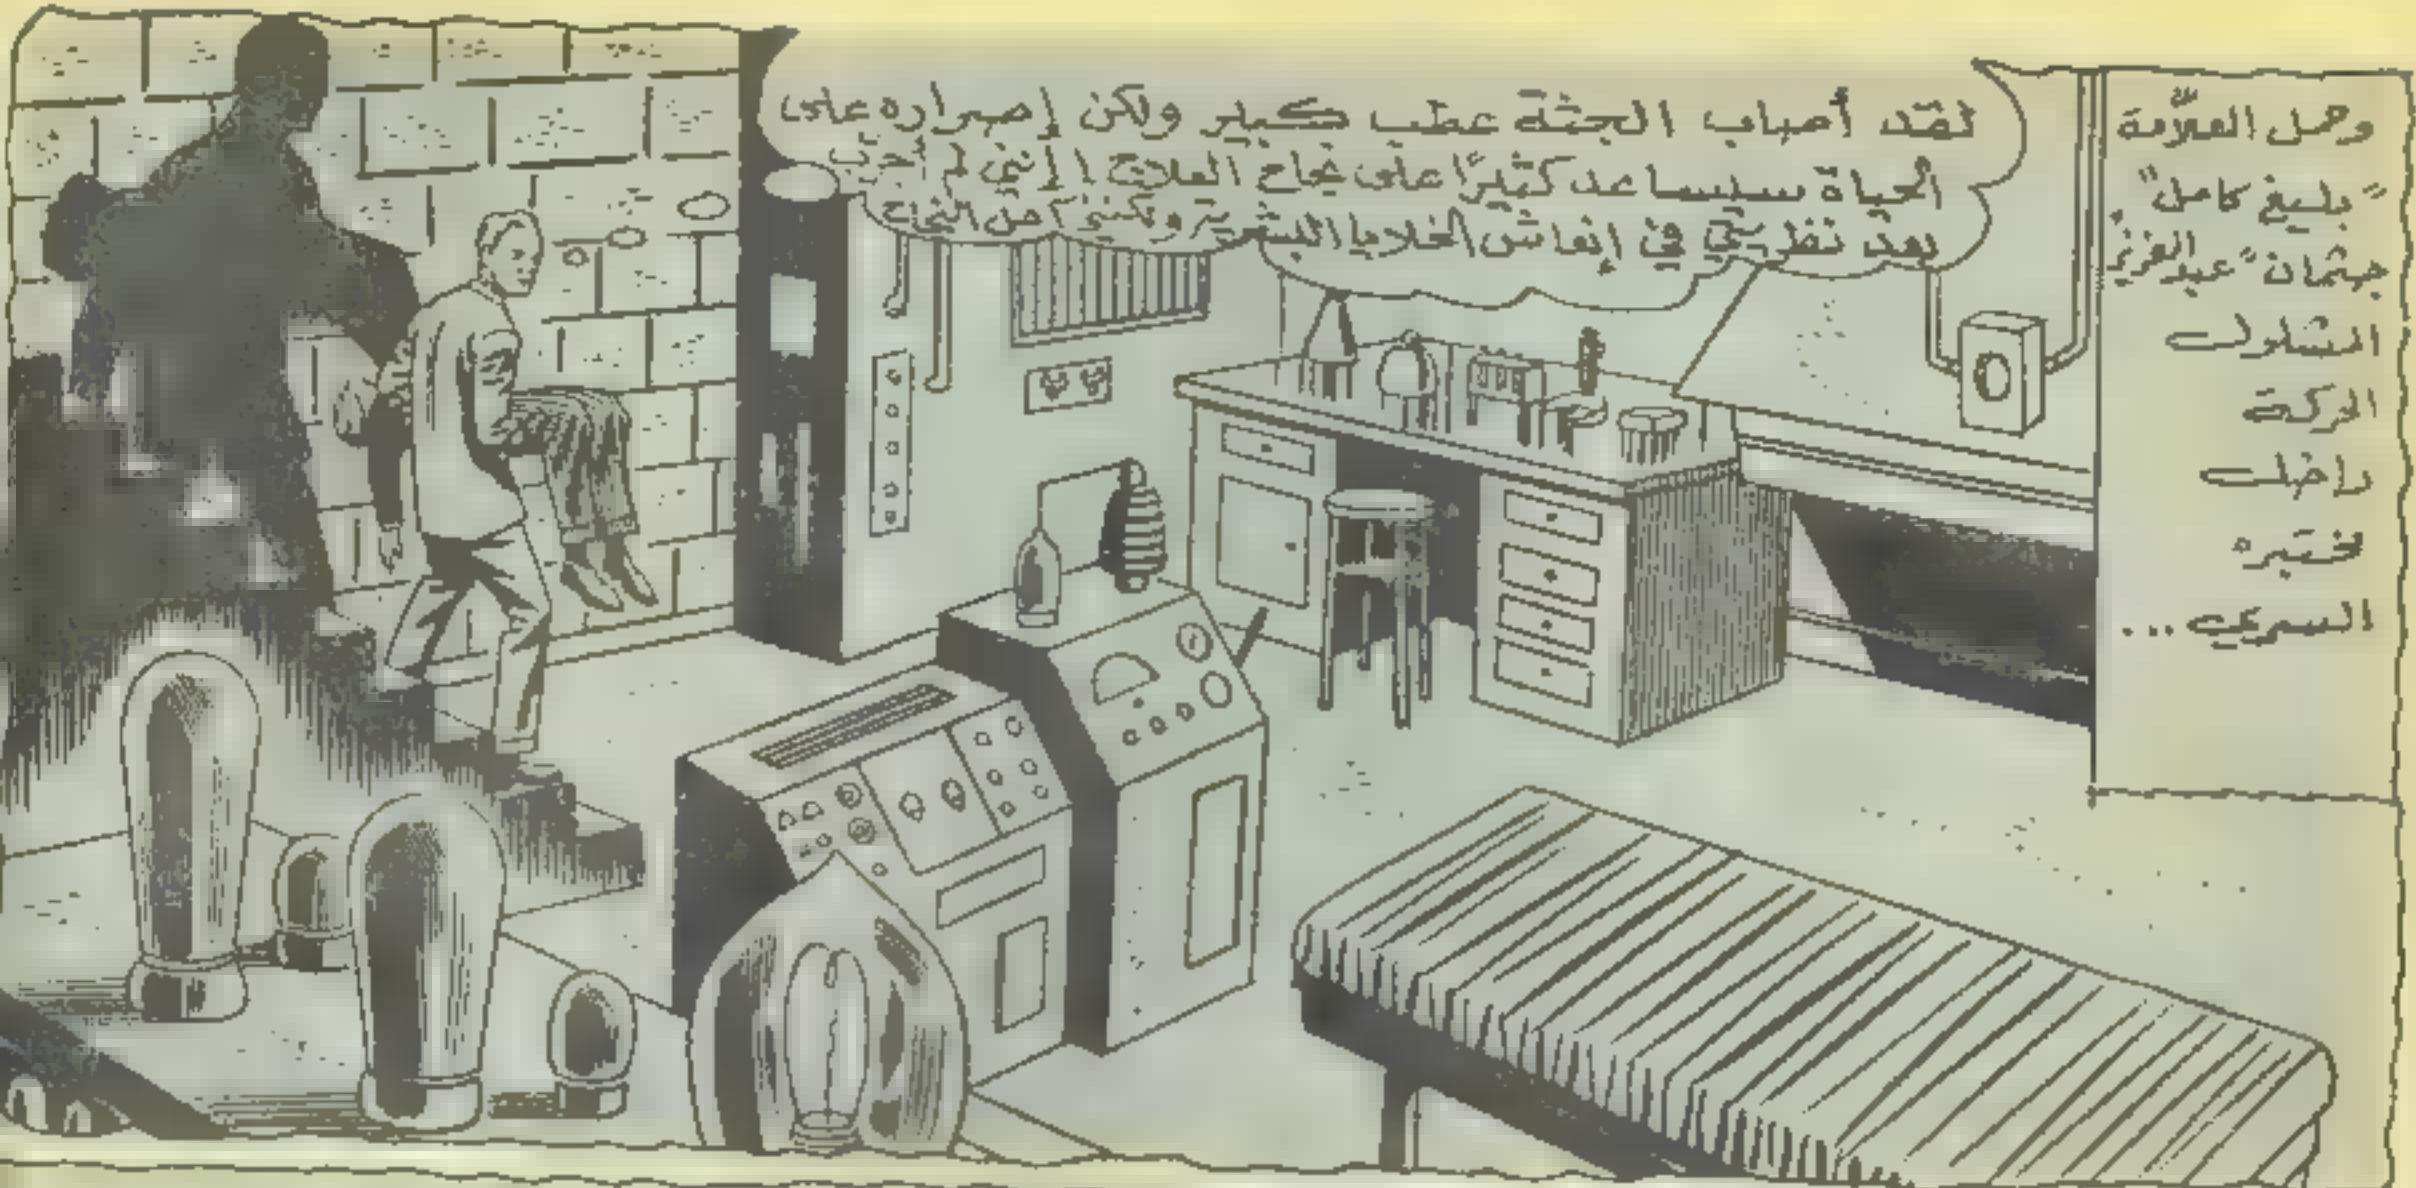 وحمل العلّامة
"بليغ كامل"
جثمان "عبد العزيز"
المشلول
الحركة
داخل
مختبره
السري ...
لقد أصاب الجثة عطب كبير ولكن إصراره على
الحياة سيساعد كثيرًا على نجاح العلاج ! إنني لم أجرّب
بعد نظريتي في إنعاش الخلايا البشرية ولكنني آمل النجاح